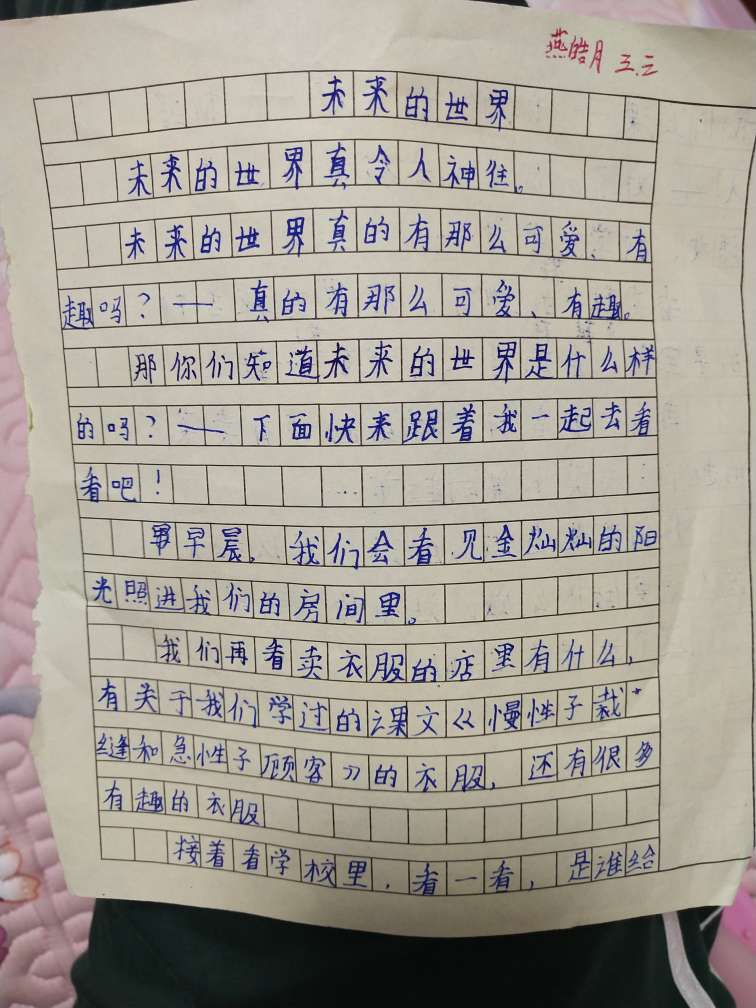 燕皓月 三.三
未来的世界
未来的世界真令人神往。
未来的世界真的有那么可爱、有
趣吗?——真的有那么可爱、有趣。
那你们知道未来的世界是什么样
的吗?——下面快来跟着我一起去看
看吧!
早晨,我们会看见金灿灿的阳
光照进我们的房间里。
我们再看卖衣服的店里有什么,
有关于我们学过的课文《慢性子裁
缝和急性子顾客》的衣服,还有很多
有趣的衣服
接着看学校里,看一看,是谁给